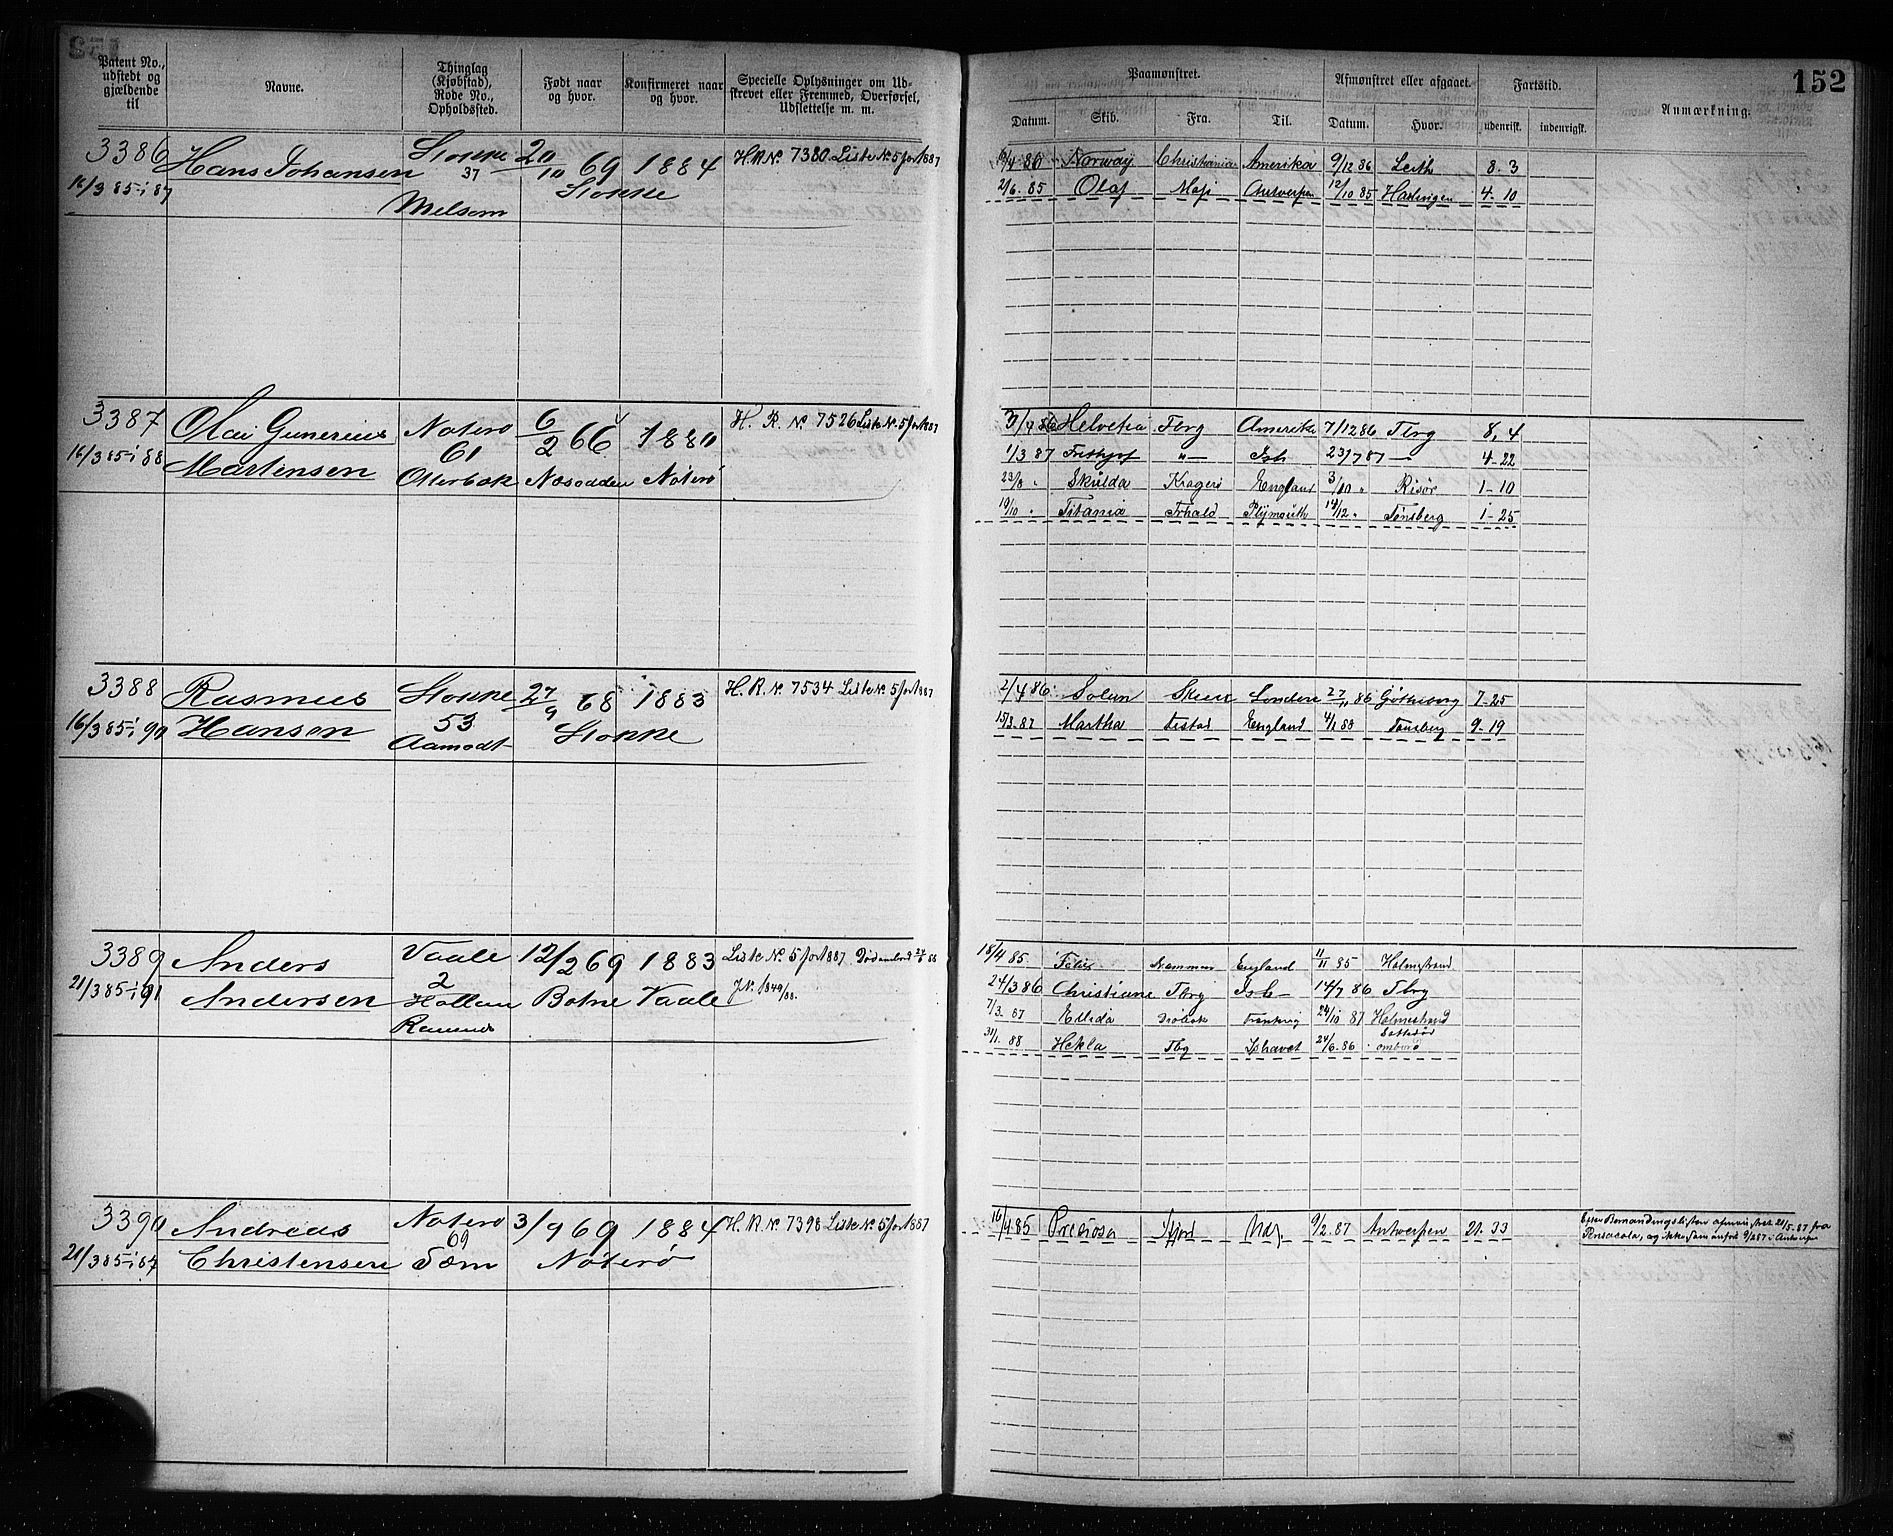 152
Patent No., udstedt og gjældende til
Navne.
Thinglag (Kjøbstad), Rode No., Opholdssted.
Født naar og hvor.
Konfirmeret naar og hvor.
Specielle Oplysninger om Udskrevet eller Fremmed, Overførsel, Udslettelse m. m.
Paamønstret.
Datum. Skib. Fra. Til.
Afmønstret eller afgaaet.
Datum. Hvor.
Fartstid.
udenrisk. indenrigsk.
Anmærkning.
3386 Hans Johansen Stokke 20/10 69 1884 H.R.No. 7380 Liste No. 5 for 1887
16/3 85 i 87 37 Stokke
Melsom
80 Norway Christiania Amerika 9/12 86 Leith 8.3
2/6. 85 Olaf Antwerpen 12/10 85 4-10
3387 Olai Gunerius Nøterø 6/2 66 1880 H. R. No 7526 Liste No. 5 for 1887
16/3 85 i 88 Mørtensen 61
Oterbæk Næsodden Nøterø
86 Helvetia Tbrg Amerika 7/12 86 Tbrg 8,4
1/3 87 Fridtjof " Ish 23/7 87 4-22
23/8 " Skulda Kragerø England 3/10 " Risør 1-10
19/10 " Titania Frhald Plymouth 14/12 " Tønsberg 1-25
3388 Rasmus Stokke 27/9 68 1883 H.R.No. 7534 Liste No. 5 for 1887
16/3 85 i 90 Hansen 53 Stokke
Aamodt
2/4 86 Skien London 27/11 86 Gøtheborg 7-25
87 Martha England Tønsberg 9-19
3389 Anders Vaale 12/2 69 1883 Liste No. 5 for 1887
21/3 85 i 91 Andersen 2 Botne Vaale J.No. 1849/88.
18/4 85 Felix Drammen England 11/11 85 Holmestrand
24/3 86 Christiane Tbrg Ish 14/7 86 Tbrg
7/3. 87 Ellida Frankrig 24/10 87 Holmestrand
31/1. 88 Hekla Tbg Ishavet 24/6. 86 ombord
3390 Andreas Nøterø 3/9 69 1884 H.R.No. 7398 Liste No. 5 for 1887
21/3 85 i 87 Christensen 69 Nøterø
Sæm
16/4 85 Preciosa 9/2. 87 Antwerpen 21. 23
Efter Bemandingslisten afmønstret 21/5. 87 fra
Pensacola, og ikke som anført 9/2 87 i Antwerpen